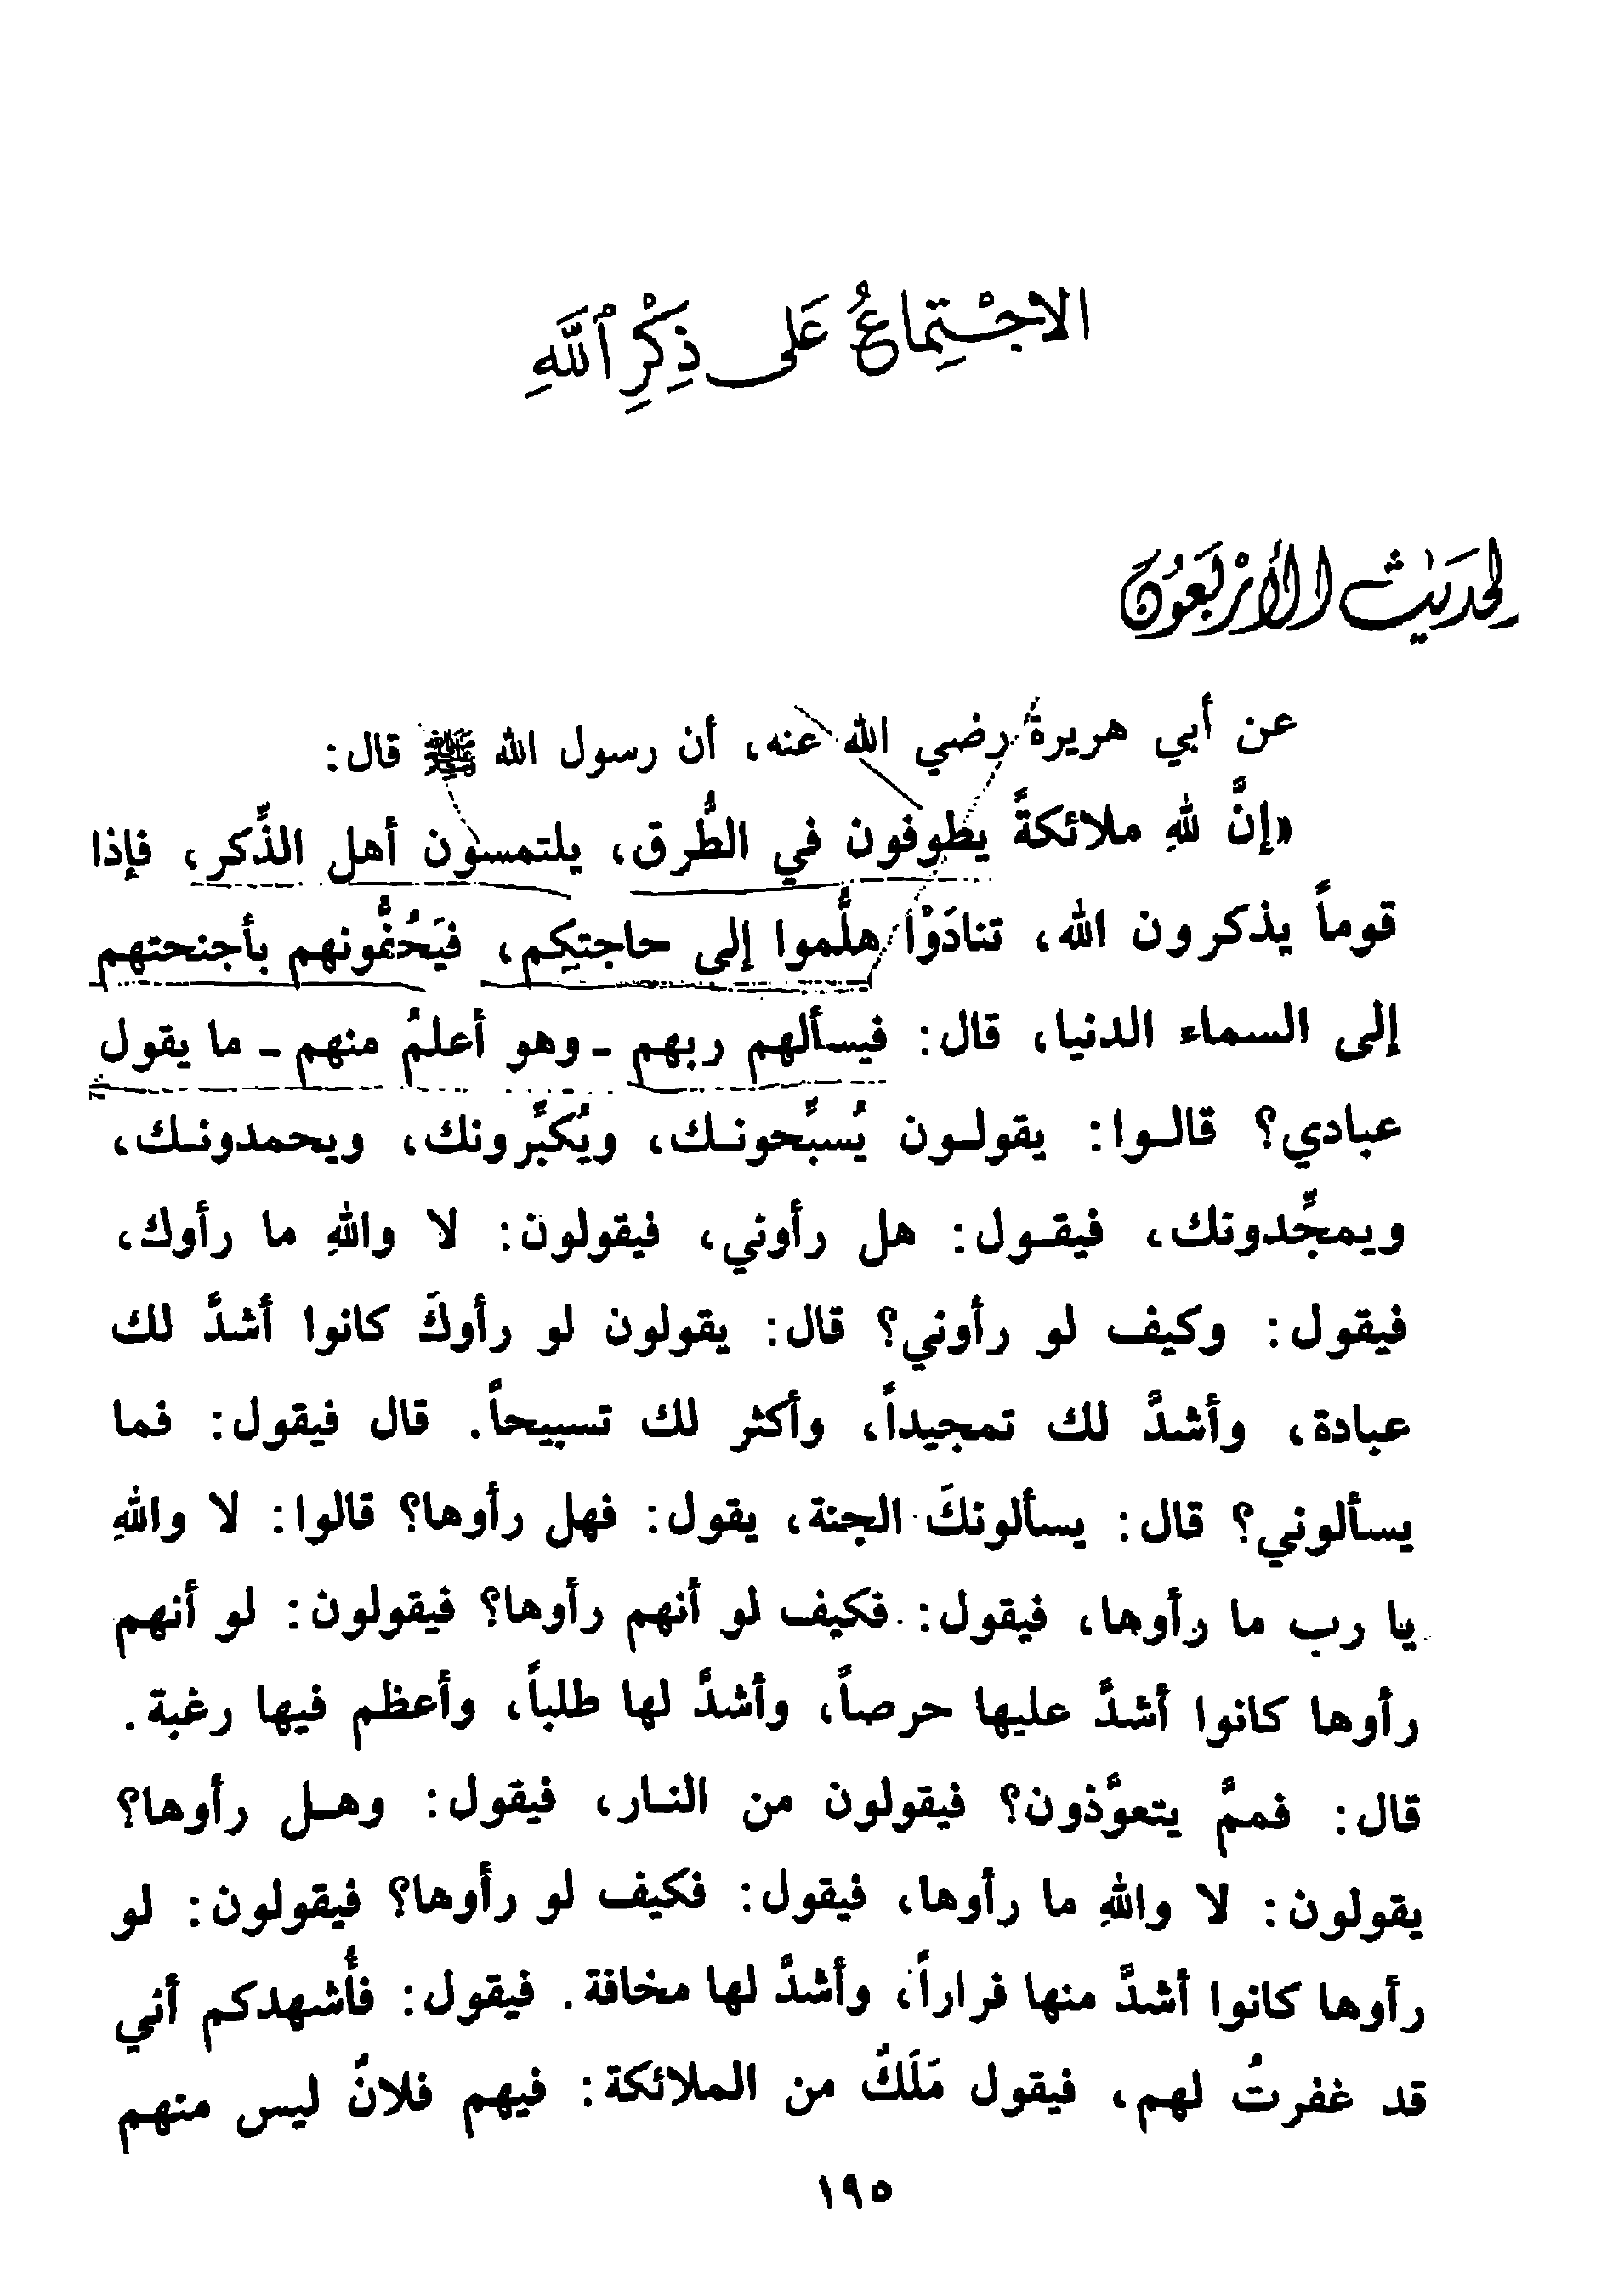 الاجْتِماعُ عَلى ذِكْرِ ٱللَّهِ
لحديث الأرْبَعُونَ
عن أبي هريرة رضي الله عنه، أن رسول الله ﷺ قال:
«إنَّ للهِ ملائكةً يطوفون في الطُّرق، يلتمسون أهل الذِّكر، فإذا
قوماً يذكرون الله، تنادَوْا هلُّموا إلى حاجتكِم، فيَحُفُّونهم بأجنحتهم
إلى السماء الدنيا، قال: فيسألهم ربهم ـ وهو أعلمُ منهم ـ ما يقول
عبادي؟ قالـوا: يقولـون يُسبِّحونـك، ويُكبِّرونك، ويحمدونـك،
ويمجِّدونك، فيقـول: هل رأوني، فيقولون: لا واللهِ ما رأوك،
فيقول: وكيف لو رأوني؟ قال: يقولون لو رأوكَ كانوا أشدَّ لك
عبادة، وأشدَّ لك تمجيداً، وأكثر لك تسبيحاً. قال فيقول: فما
يسألوني؟ قال: يسألونكَ الجنة، يقول: فهل رأوها؟ قالوا: لا واللهِ
يا رب ما رأوها، فيقول: فكيف لو أنهم رأوها؟ فيقولون: لو أنهم
رأوها كانوا أشدَّ عليها حرصاً، وأشدَّ لها طلباً، وأعظم فيها رغبة.
قال: فممَّ يتعوَّذون؟ فيقولون من النـار، فيقول: وهـل رأوها؟
يقولون: لا واللهِ ما رأوها، فيقول: فكيف لو رأوها؟ فيقولون: لو
رأوها كانوا أشدَّ منها فراراً، وأشدَّ لها مخافة. فيقول: فأُشهدكم أني
قد غفرتُ لهم، فيقول مَلَكٌ من الملائكة: فيهم فلانٌ ليس منهم
١٩٥